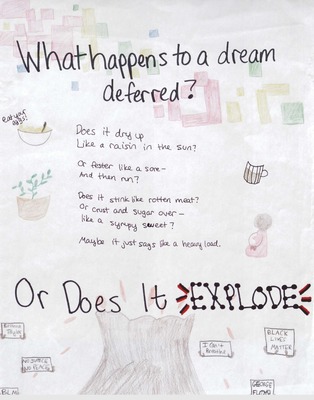 What happens to a dream
deferred?
eat your
eggs!
Does it dry up
Like a raisin in the sun?
Or fester like a sore—
And then run?
Does it stink like rotten meat?
Or crust and sugar over—
like a syrupy sweet?
Maybe it just sags like a heavy load.
Or Does It EXPLODE
Breonna
Taylor
NO JUSTICE
NO PEACE
I Can't
Breathe
BLACK
LIVES
MATTER
GEORGE
FLOYD